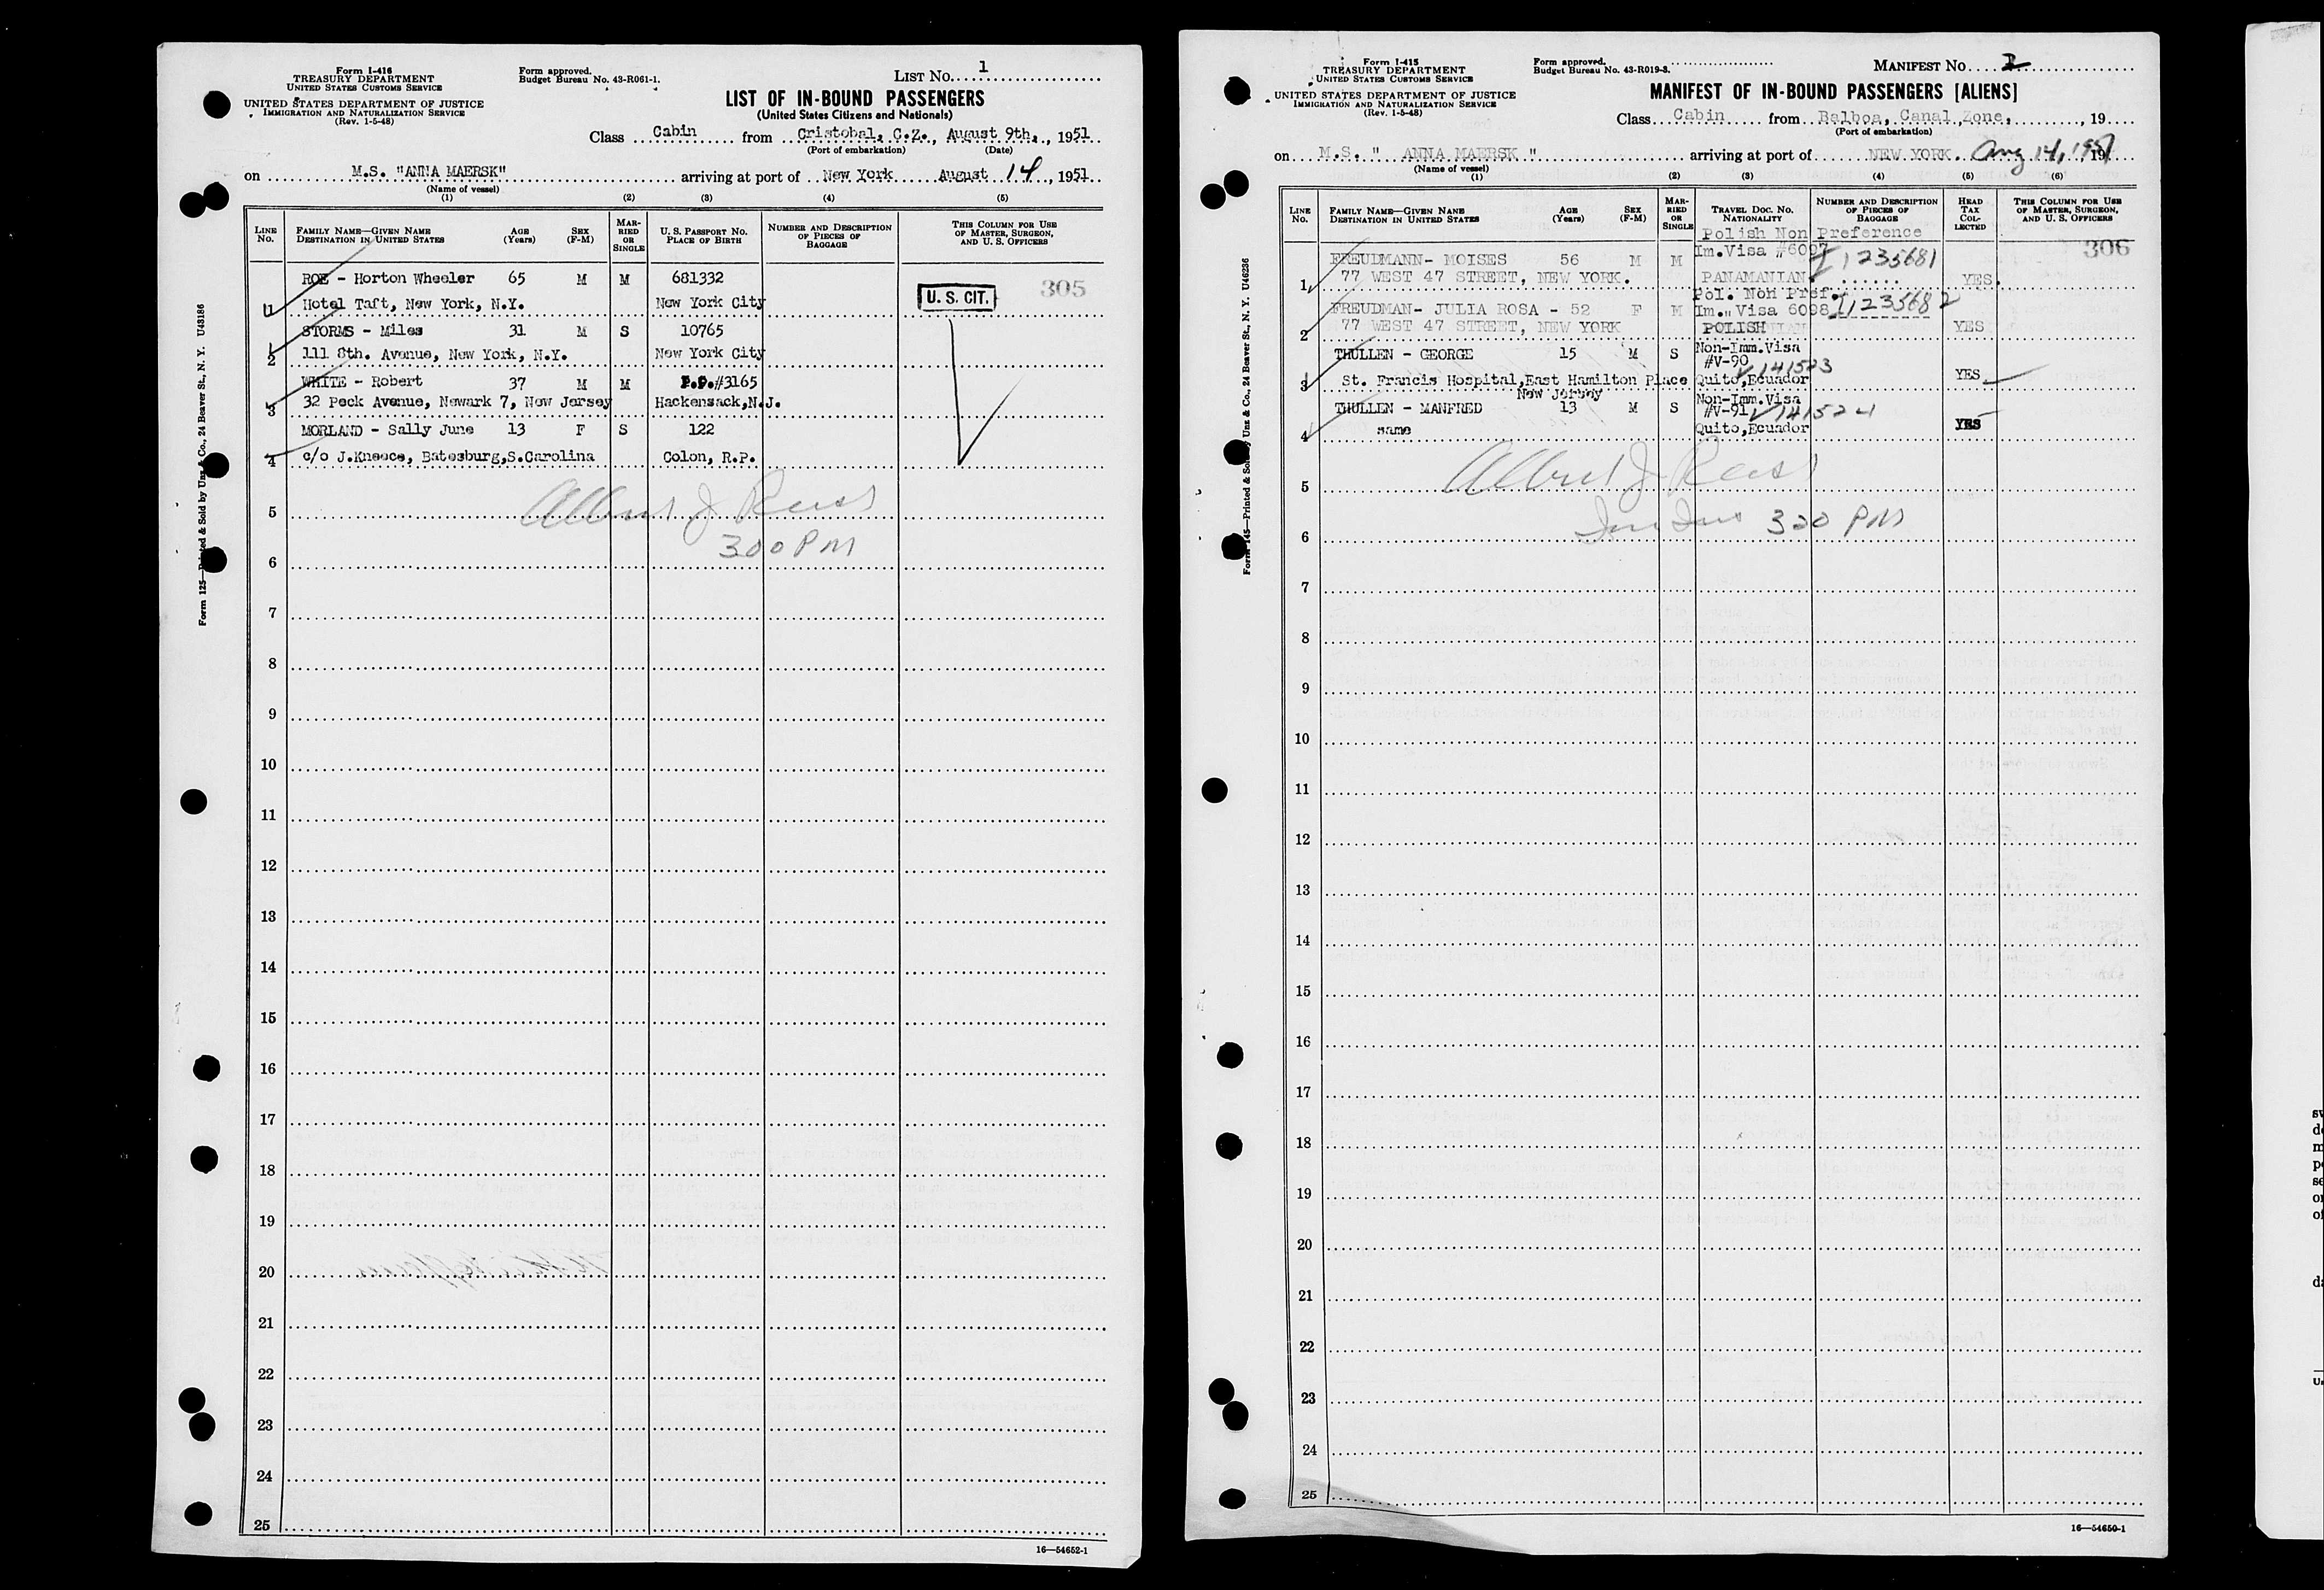 Form I-416
TREASURY DEPARTMENT
UNITED STATES CUSTOMS SERVICE
UNITED STATES DEPARTMENT OF JUSTICE
IMMIGRATION AND NATURALIZATION SERVICE
(Rev. 1-5-48)
Form approved.
Budget Bureau No. 43-R061-1.
LIST No. 1
LIST OF IN-BOUND PASSENGERS
(United States Citizens and Nationals)
Class Cabin from Cristobal, C.Z., August 9th, 1951
(Port of embarkation) (Date)
on M.S. "ANNA MAERSK" arriving at port of New York August 14, 1951
(Name of vessel)
(1) (2) (3) (4) (5)
LINE No.
FAMILY NAME—GIVEN NAME
DESTINATION IN UNITED STATES
AGE (Years)
SEX (F-M)
MARRIED OR SINGLE
U. S. PASSPORT NO.
PLACE OF BIRTH
NUMBER AND DESCRIPTION OF PIECES OF BAGGAGE
THIS COLUMN FOR USE OF MASTER, SURGEON, AND U. S. OFFICERS
ROE - Horton Wheeler 65 M M 681332
305
U. S. CIT.
1 Hotel Taft, New York, N.Y. New York City
STORMS - Miles 31 M S 10765
2 111 8th. Avenue, New York, N.Y. New York City
WHITE - Robert 37 M M P.P.#3165
3 32 Peck Avenue, Newark 7, New Jersey Hackensack,N.J.
MORLAND - Sally June 13 F S 122
4 c/o J.Kneece, Batesburg,S.Carolina Colon, R.P.
5
300 PM
6
7
8
9
10
11
12
13
14
15
16
17
18
19
20
21
22
23
24
25
16—54652-1
Form 125—Printed & Sold by Unz & Co., 24 Beaver St., N. Y. U43186
Form I-415
TREASURY DEPARTMENT
UNITED STATES CUSTOMS SERVICE
UNITED STATES DEPARTMENT OF JUSTICE
IMMIGRATION AND NATURALIZATION SERVICE
(Rev. 1-5-48)
Form approved.
Budget Bureau No. 43-R019-3.
MANIFEST No
MANIFEST OF IN-BOUND PASSENGERS [ALIENS]
Class Cabin from Balboa, Canal Zone, , 19
(Port of embarkation)
on M.S. " ANNA MAERSK " arriving at port of NEW YORK. Aug 14, 1951
(Name of vessel)
(1) (2) (3) (4) (5) (6)
LINE No.
FAMILY NAME—GIVEN NAME
DESTINATION IN UNITED STATES
AGE (Years)
SEX (F-M)
MARRIED OR SINGLE
TRAVEL DOC. NO.
NATIONALITY
NUMBER AND DESCRIPTION OF PIECES OF BAGGAGE
HEAD TAX COLLECTED
THIS COLUMN FOR USE OF MASTER, SURGEON, AND U. S. OFFICERS
Polish Non Preference
306
Im.Visa #6097
FREUDMANN- MOISES 56 M M I 1235681
1 77 WEST 47 STREET, NEW YORK. PANAMANIAN YES.
Pol. Non Pref.
FREUDMAN- JULIA ROSA - 52 F M Im. Visa 6098 I 1235682
2 77 WEST 47 STREET, NEW YORK POLISH YES
THULLEN - GEORGE 15 M S Non-Imm.Visa
#V-90 V 141523
3 St. Francis Hospital,East Hamilton Place Quito,Ecuador YES
New Jersey
THULLEN - MANFRED 13 M S Non-Imm.Visa
#V-91 V 141524
4 same Quito,Ecuador YES
5
320 PM
6
7
8
9
10
11
12
13
14
15
16
17
18
19
20
21
22
23
24
25
16—54650-1
Form 145—Printed & Sold by Unz & Co., 24 Beaver St., N. Y. U46236